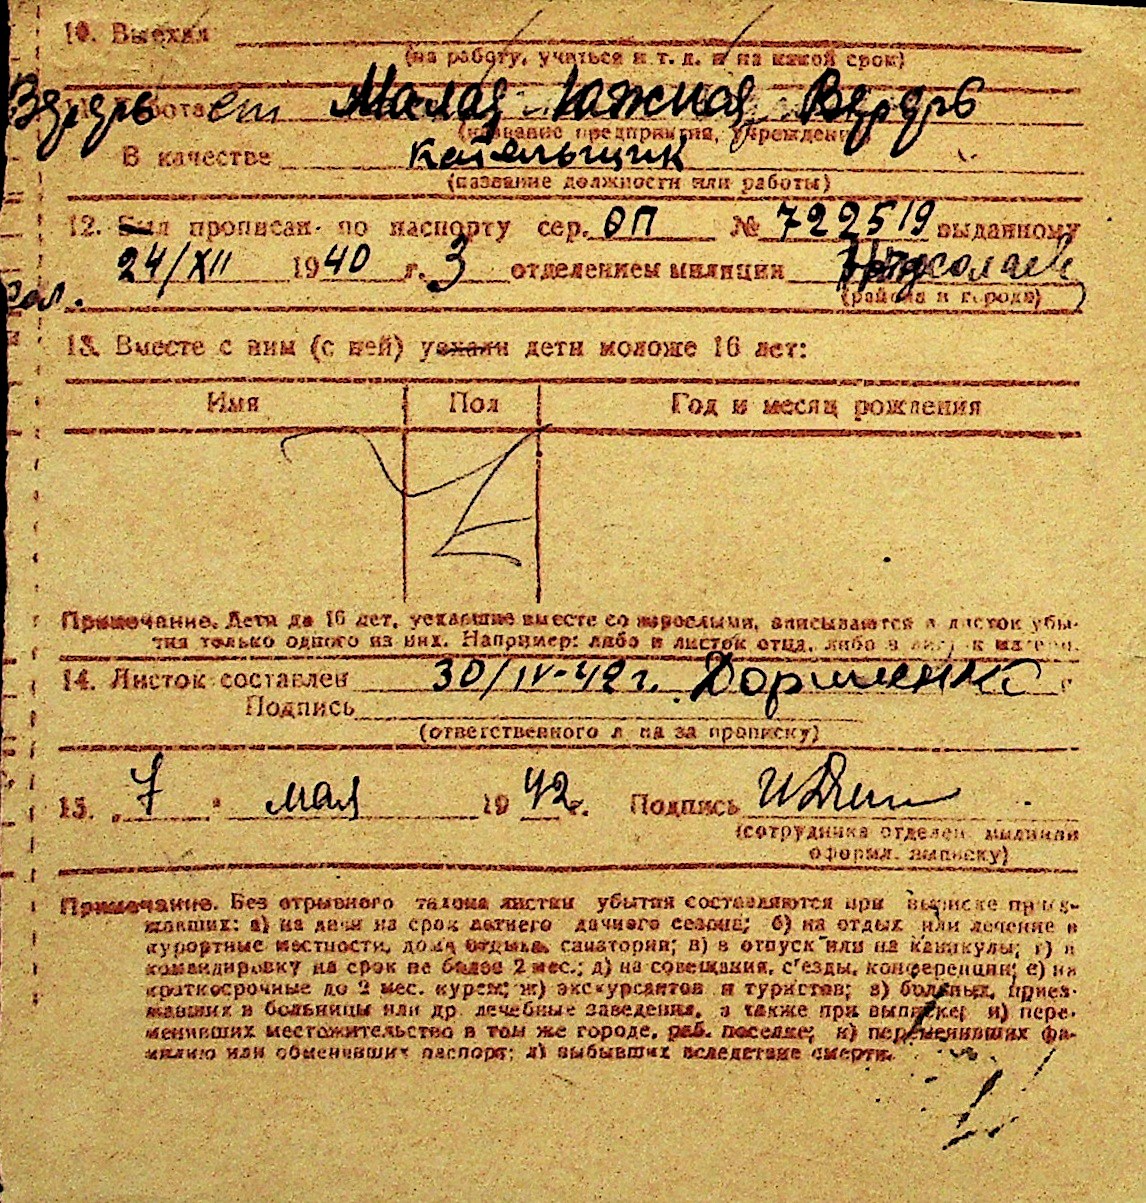 10. Выехал
(на работу, учиться и т. д. и на какой срок)
Верфь работает Малая Южная Верфь
(название предприятия, учреждения
В качестве котельщик
(название должности или работы)
12. Был прописан по паспорту сер. ОП № 722519 выданному
24/XII 1940 г. 3 отделением милиции
(района и города)
13. Вместе с ним (с ней) уехали дети моложе 16 лет:
Имя Пол Год и месяц рождения
Примечание. Дети до 16 лет, уехавшие вместе со взрослыми, вписываются в листок убы-
тия только одного из них. Например: либо в листок отца, либо в листок матери.
14. Листок составлен 30/IV-42 г. Дорошенко
Подпись
(ответственного лица за прописку)
15. „7" мая 1942 г. Подпись
(сотрудника отделен. милиции
оформл. выписку)
Примечание. Без отрывного талона листки убытия составляются при выписке приез-
жавших: а) на дачи на срок летнего дачного сезона; б) на отдых или лечение в
курортные местности, дома отдыха, санатории; в) в отпуск или на каникулы; г) в
командировку на срок не более 2 мес.; д) на совещания, с'езды, конференции; е) на
краткосрочные до 2 мес. курсы; ж) экскурсантов и туристов; з) больных, приез-
жавших в больницы или др. лечебные заведения, а также при выписке; и) пере-
менивших местожительство в том же городе, раб. поселке; к) переменивших фа-
милию или обменявших паспорт; л) выбывших вследствие смерти.